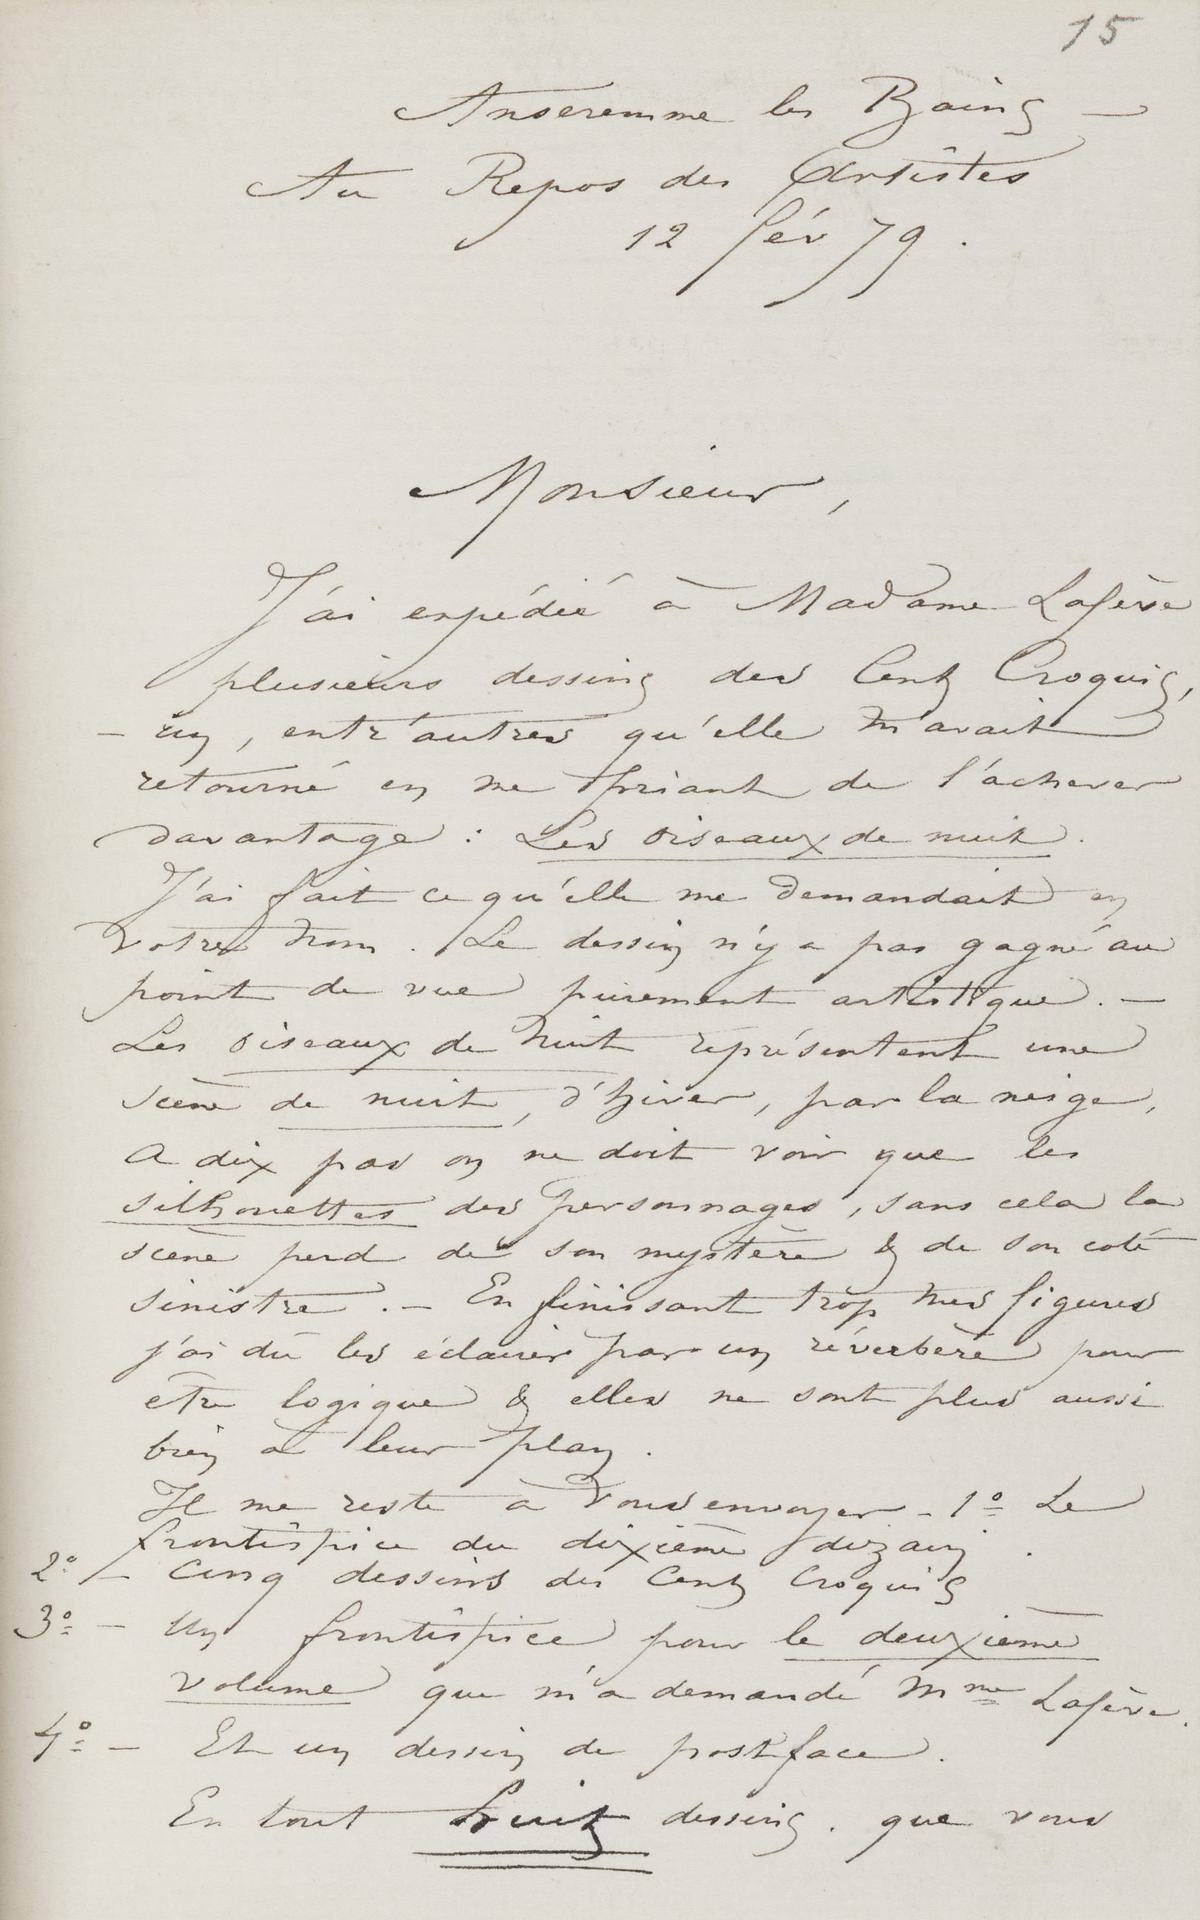 15
Anseremme les Bains —
Au Repos des Artistes
12 fév 79.
Monsieur,
J'ai expédié à Madame Lafève
plusieurs dessins des Cent Croquis,
— un, entr'autres qu'elle m'avait
retourné en me priant de l'achever
davantage : Les oiseaux de nuit.
J'ai fait ce qu'elle me demandait en
votre nom. Le dessin n'y a pas gagné au
point de vue purement artistique. —
Les oiseaux de Nuit représentent une
scène de nuit, d'hiver, par la neige,
A dix pas on ne doit voir que les
silhouettes des personnages, sans cela la
scène perd de son mystère & de son coté
sinistre. — En finissant trop mes figures
j'ai dû les éclairer par un réverbère pour
être logique & elles ne sont plus aussi
bien à leur plan.
Il me reste à vous envoyer - 1º Le
frontispice du dixième dizain.
2º — Cinq dessins des Cent Croquis
3º — Un frontispice pour le deuxième
volume que m'a demandé Mme Lafève.
4º — Et un dessin de postface.
En tout huit dessins. que vous